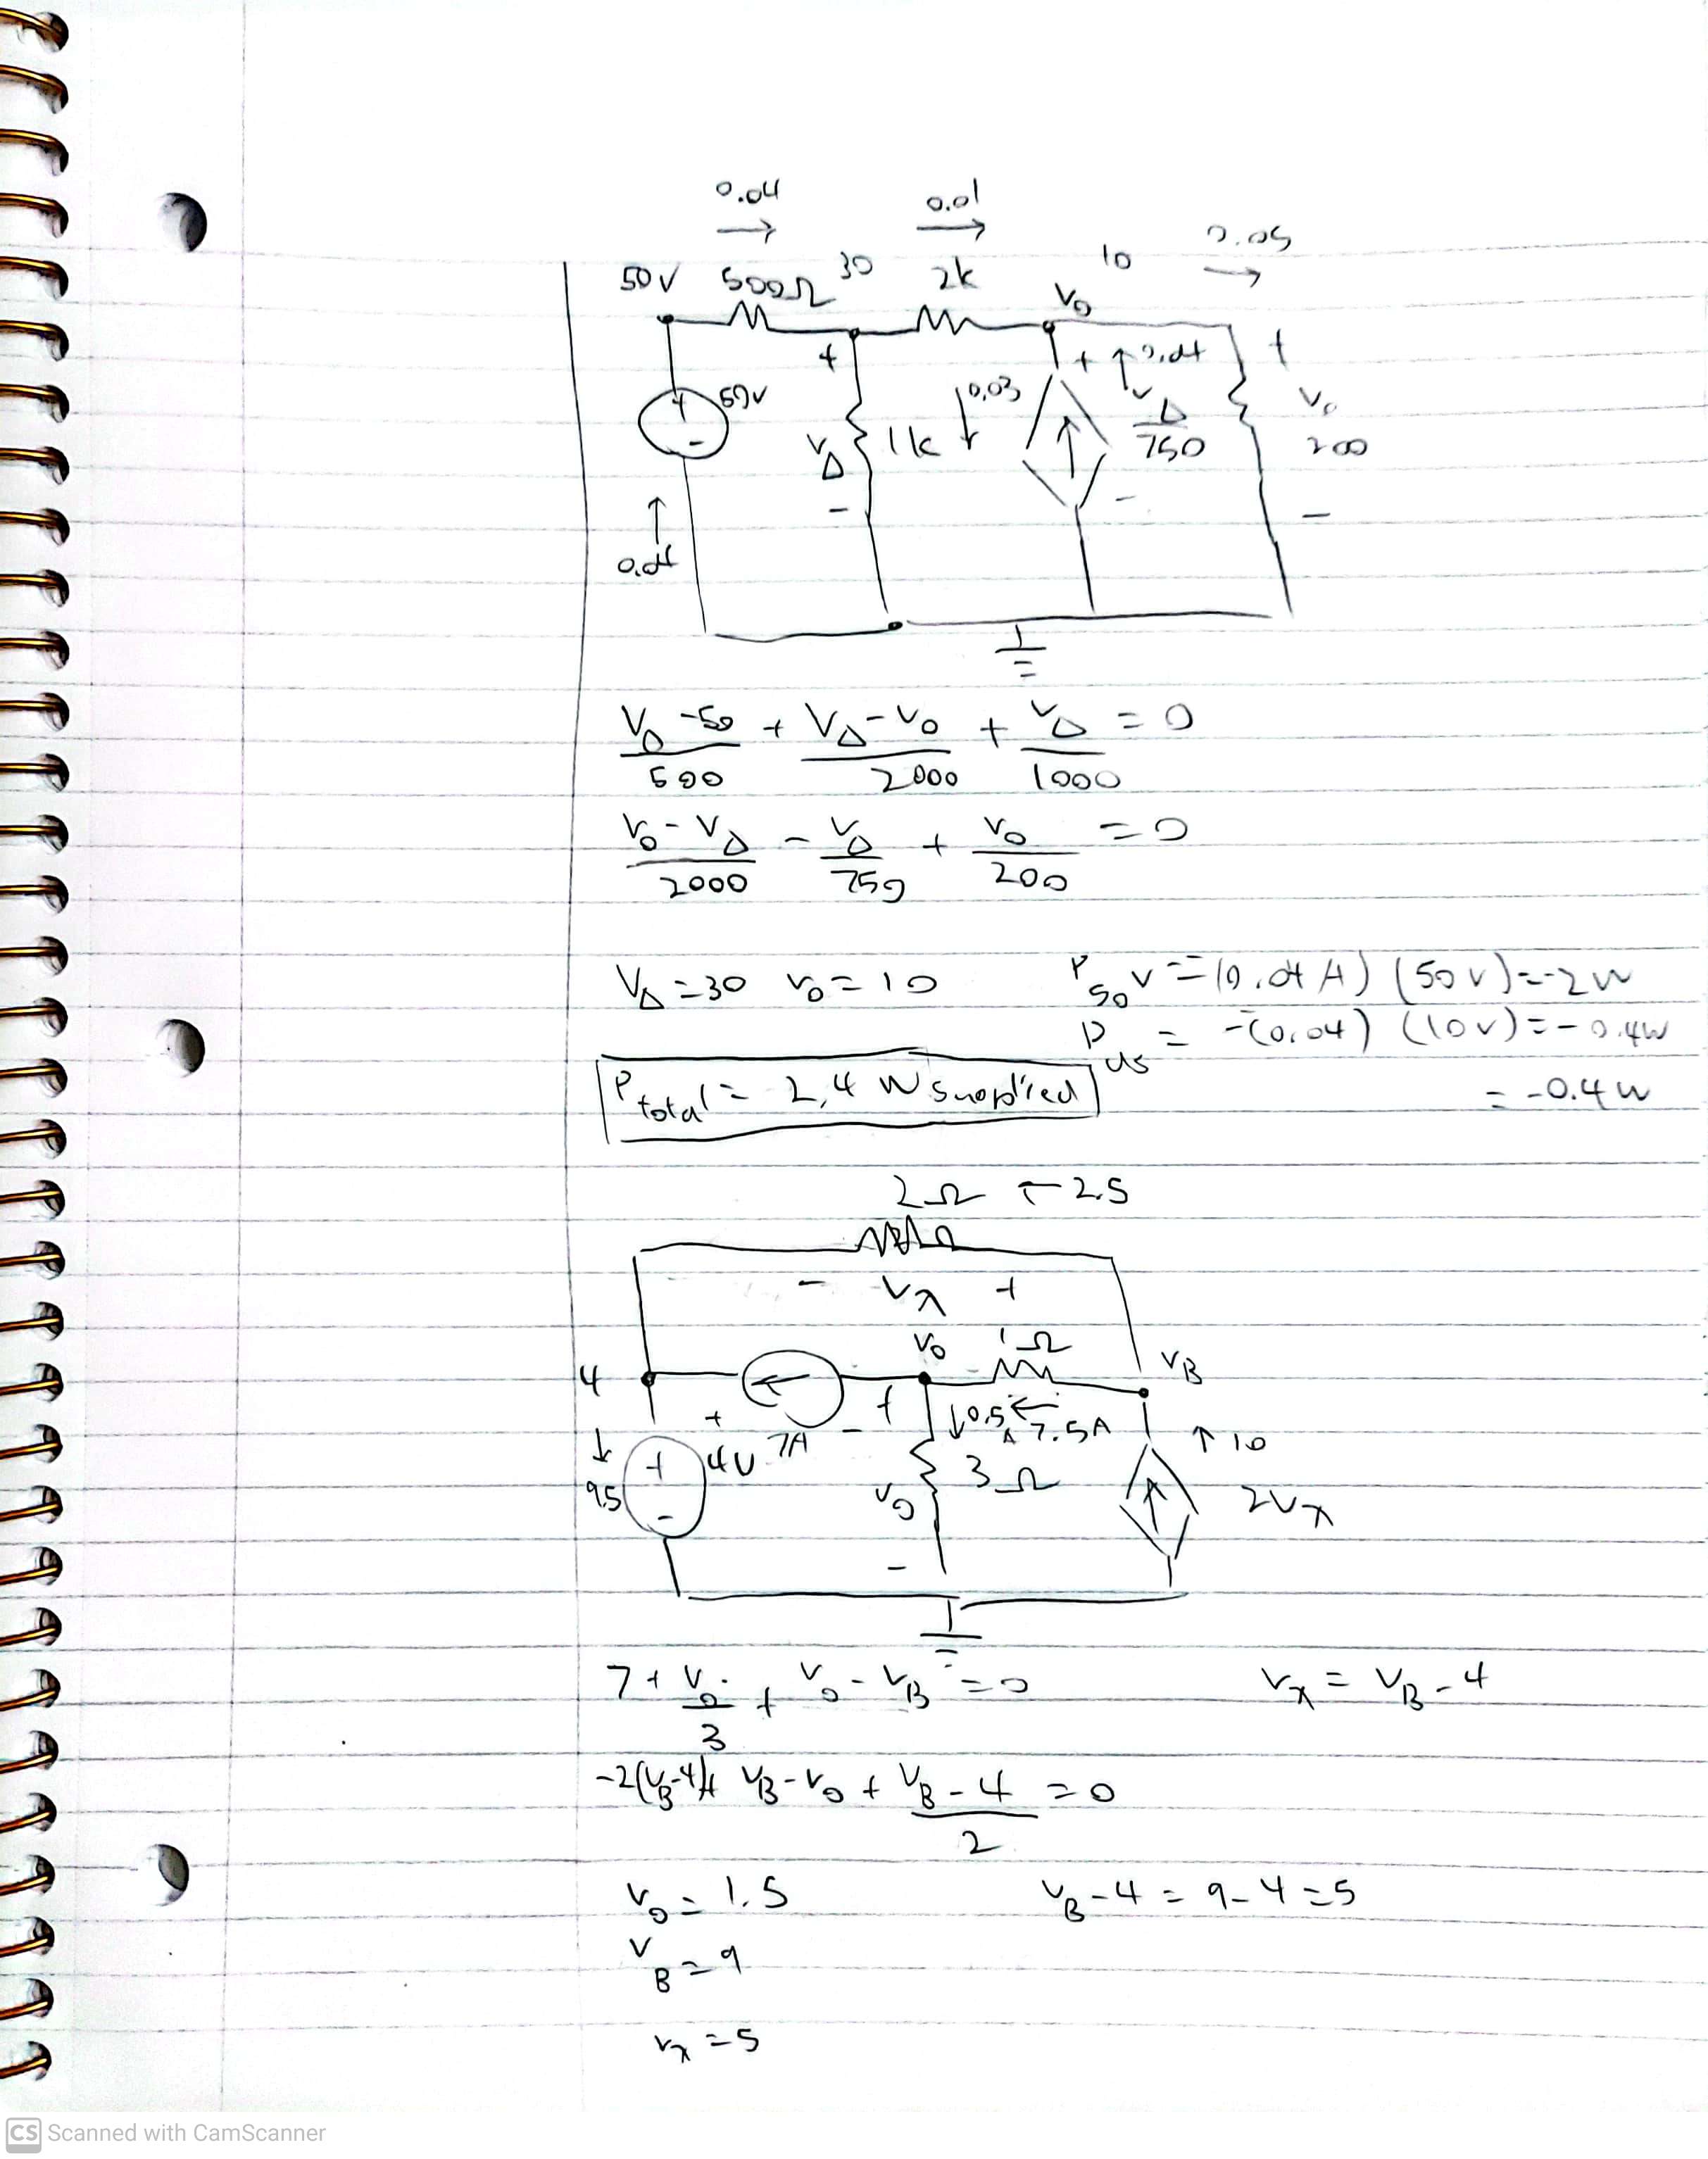 0.04 → 0.01 → 0.05 →
50V 500Ω 30 2k V₀ 10
+ + ↑ 0.04 +
50V + - V_Δ 1k ↓ 0.03 V_Δ/750 V₀ 200
- - -
↑ 0.04
(V_Δ - 50)/500 + (V_Δ - V₀)/2000 + V_Δ/1000 = 0
(V₀ - V_Δ)/2000 - V_Δ/750 + V₀/200 = 0
V_Δ = 30 V₀ = 10 P_50V = -(0.04 A) (50 V) = -2W
= -(0.04) (10V) = -0.4W
P_total = 2.4 W supplied = -0.4W
2Ω ← 2.5
- V_x +
4 V₀ 1Ω V_B
+ 7A - + ↓ 0.5 A ← 7.5A ↑ 10
↓ 9.5 + - 4V V₀ 3Ω 2V_x
-
7 + V₀/3 + V₀ - V_B = 0 V_x = V_B - 4
-2(V_B-4) + V_B - V₀ + (V_B - 4)/2 = 0
V₀ = 1.5 V_B - 4 = 9 - 4 = 5
V_B = 9
V_x = 5
CS Scanned with CamScanner